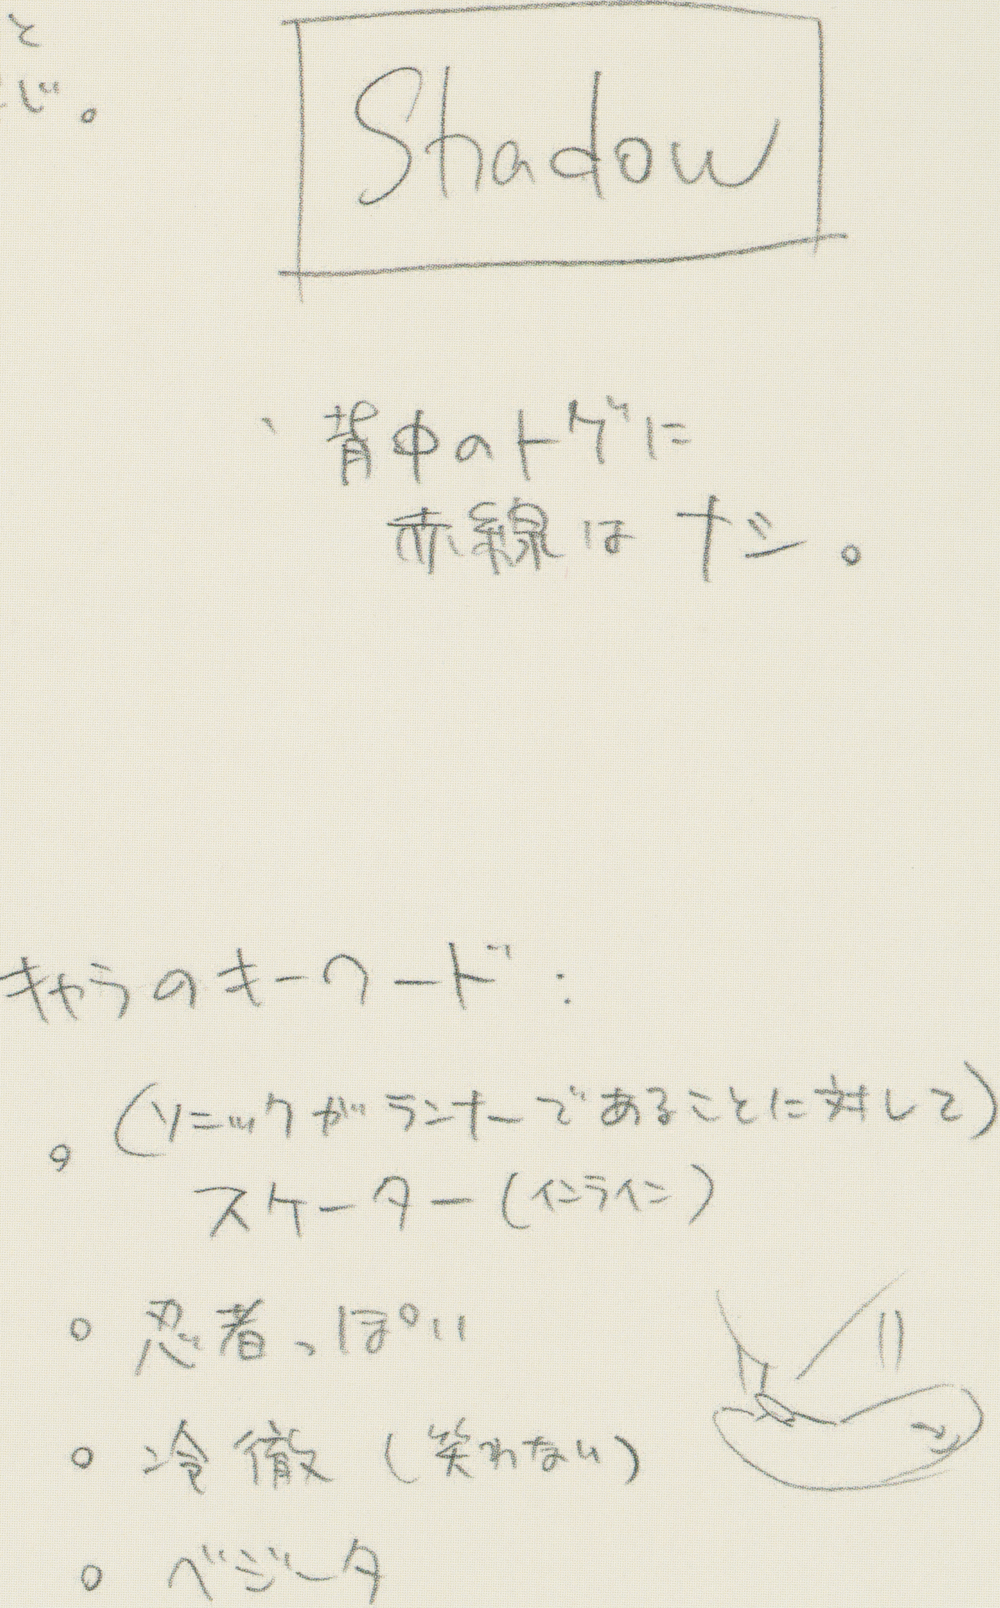 と
じ。
Shadow
、背中のトゲに
赤線はナシ。
キャラのキーワード:
。(ソニックがランナーであることに対して)
スケーター(インライン)
○ 忍者っぽい
○ 冷徹(笑わない)
○ ベジータ